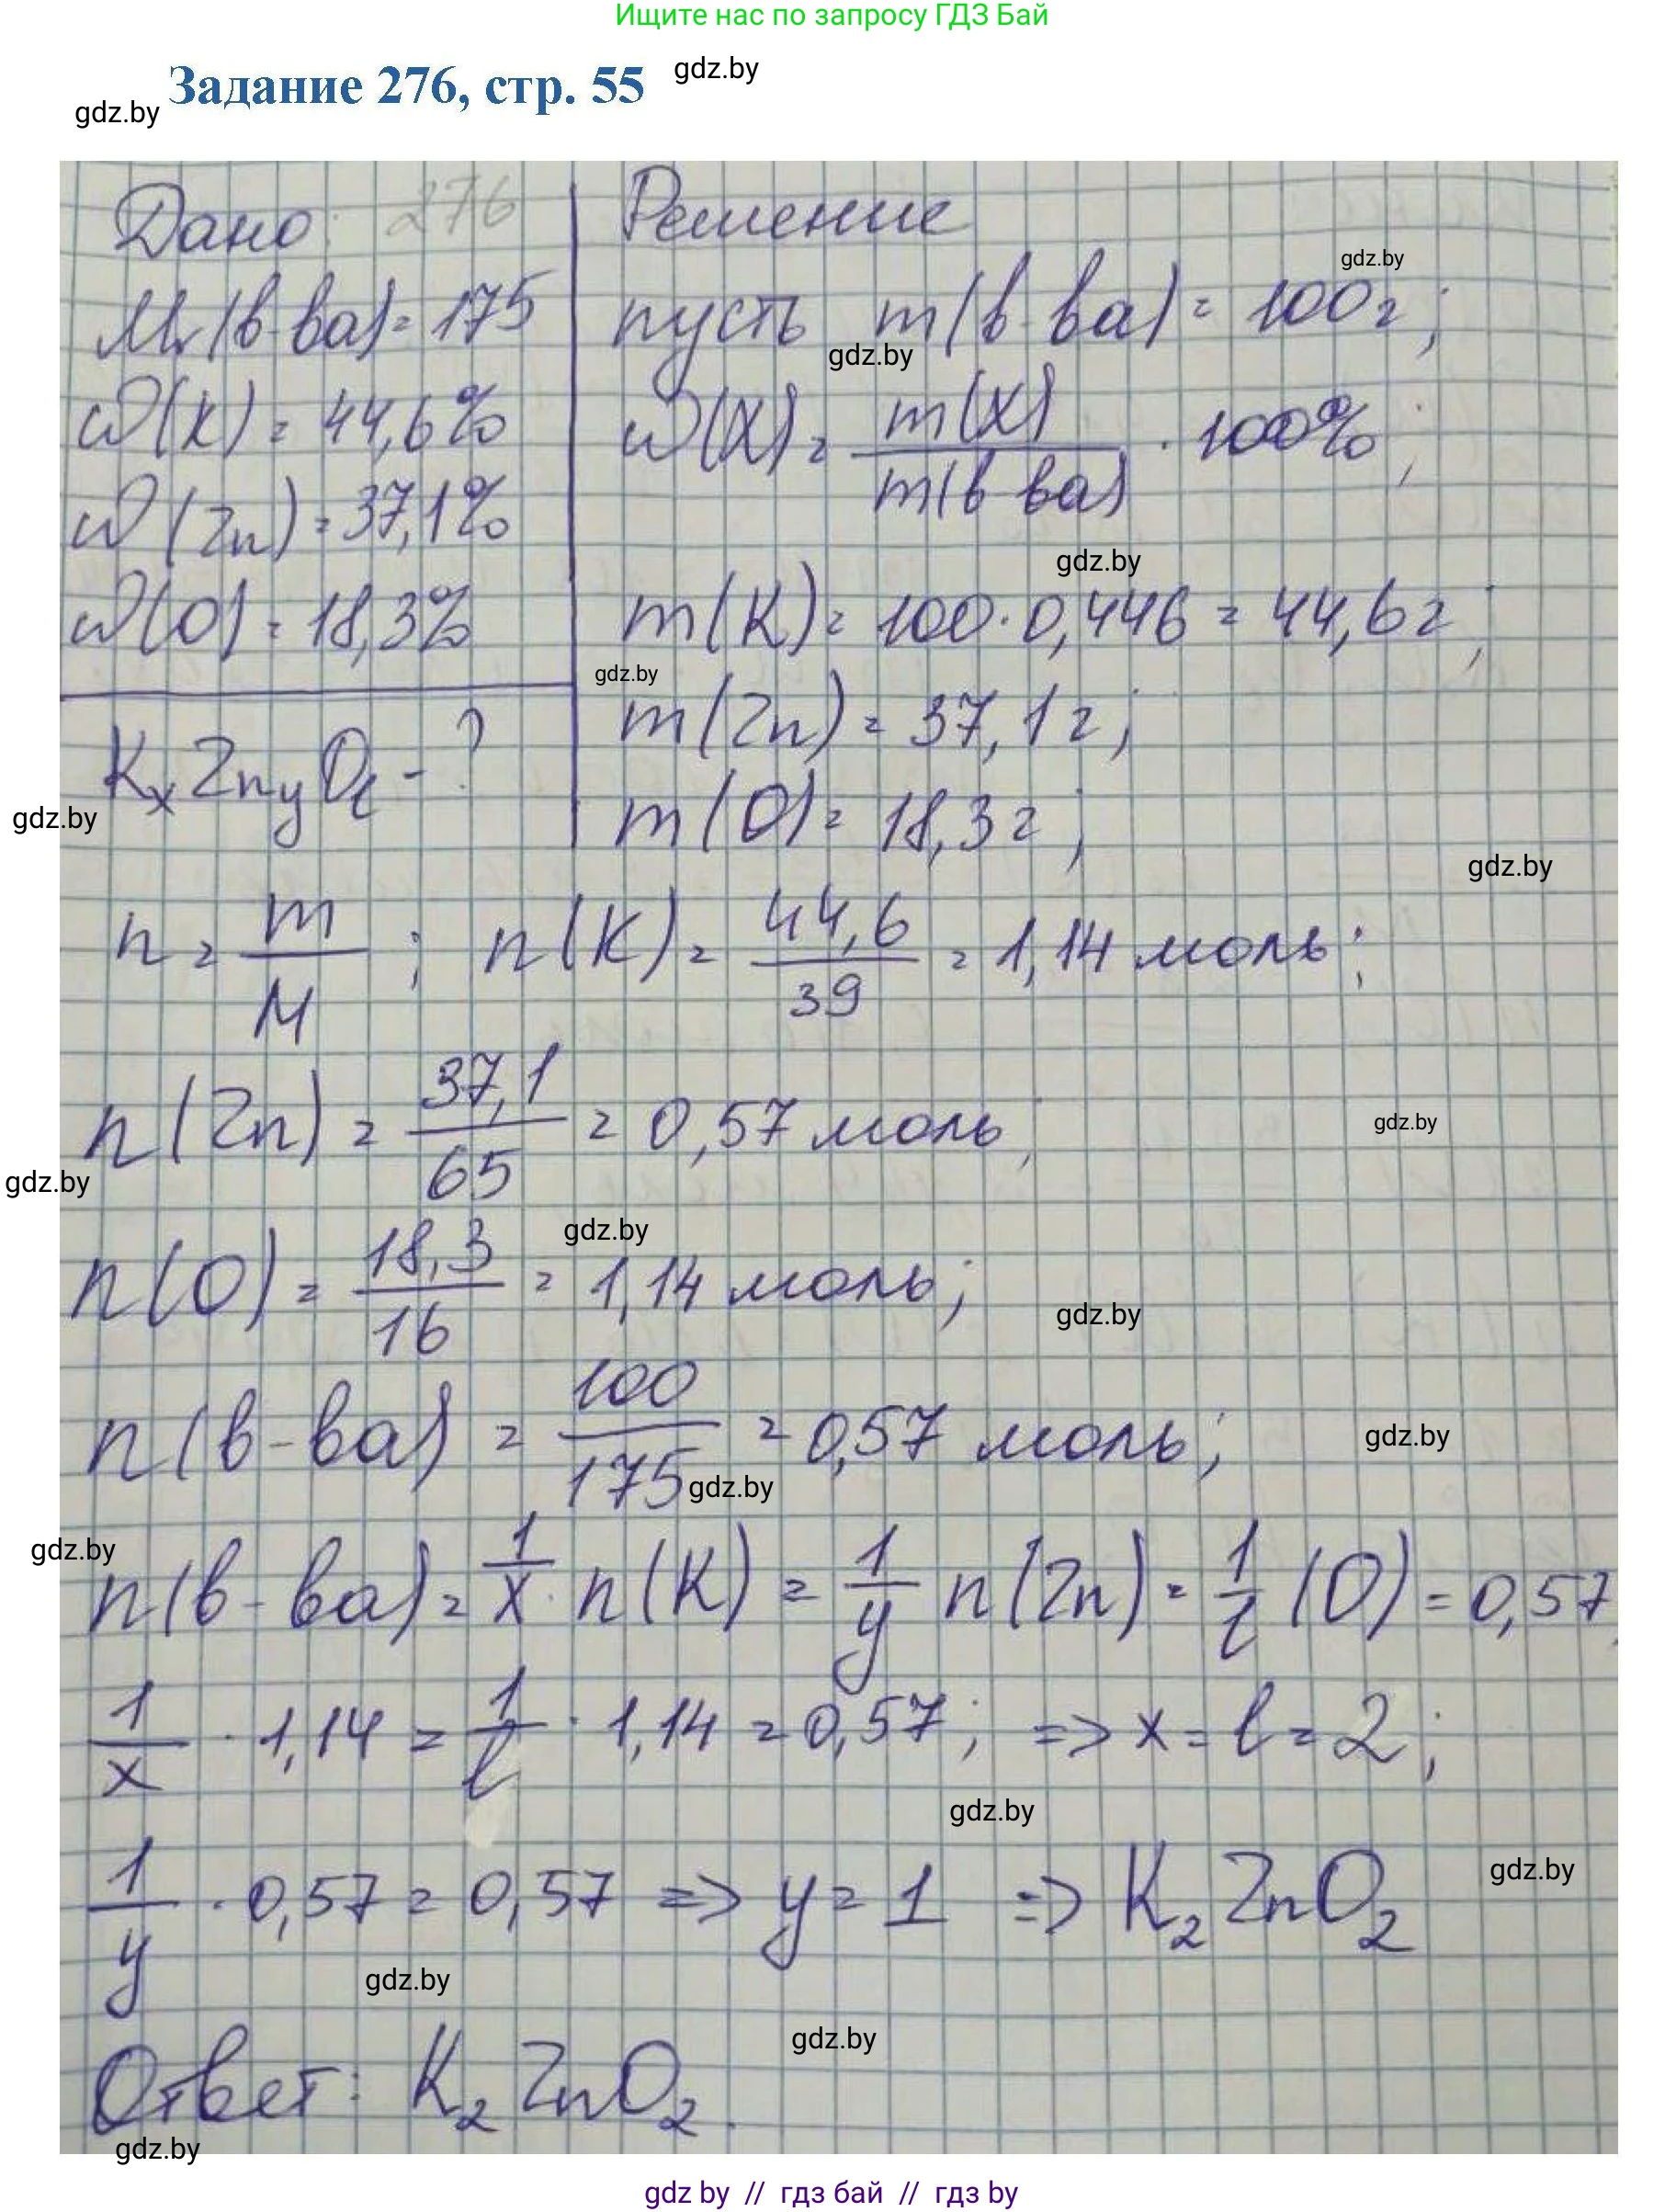 Ищите нас по запросу ГДЗ Бай
Задание 276, стр. 55
gdz.by
gdz.by
Дано: 276
Mr(в-ва) = 175
ω(K) = 44,6%
ω(Zn) = 37,1%
ω(O) = 18,3%
KxZnyOl - ?
Решение
gdz.by
пусть m(в-ва) = 100г;
gdz.by
ω(X) = m(X) / m(в-ва) · 100%;
gdz.by
m(K) = 100 · 0,446 = 44,6г;
gdz.by
m(Zn) = 37,1г;
m(O) = 18,3г;
gdz.by
gdz.by
n = m / M; n(K) = 44,6 / 39 = 1,14 моль;
n(Zn) = 37,1 / 65 = 0,57 моль;
gdz.by
gdz.by
gdz.by
n(O) = 18,3 / 16 = 1,14 моль;
gdz.by
n(в-ва) = 100 / 175 = 0,57 моль;
gdz.by
gdz.by
gdz.by
n(в-ва) = 1/x · n(K) = 1/y n(Zn) = 1/l (O) = 0,57;
1/x · 1,14 = 1/l · 1,14 = 0,57; => x = l = 2;
gdz.by
1/y · 0,57 = 0,57 => y = 1 => K2ZnO2
gdz.by
gdz.by
gdz.by
Ответ: K2ZnO2.
gdz.by
gdz by // гдз бай // гдз by